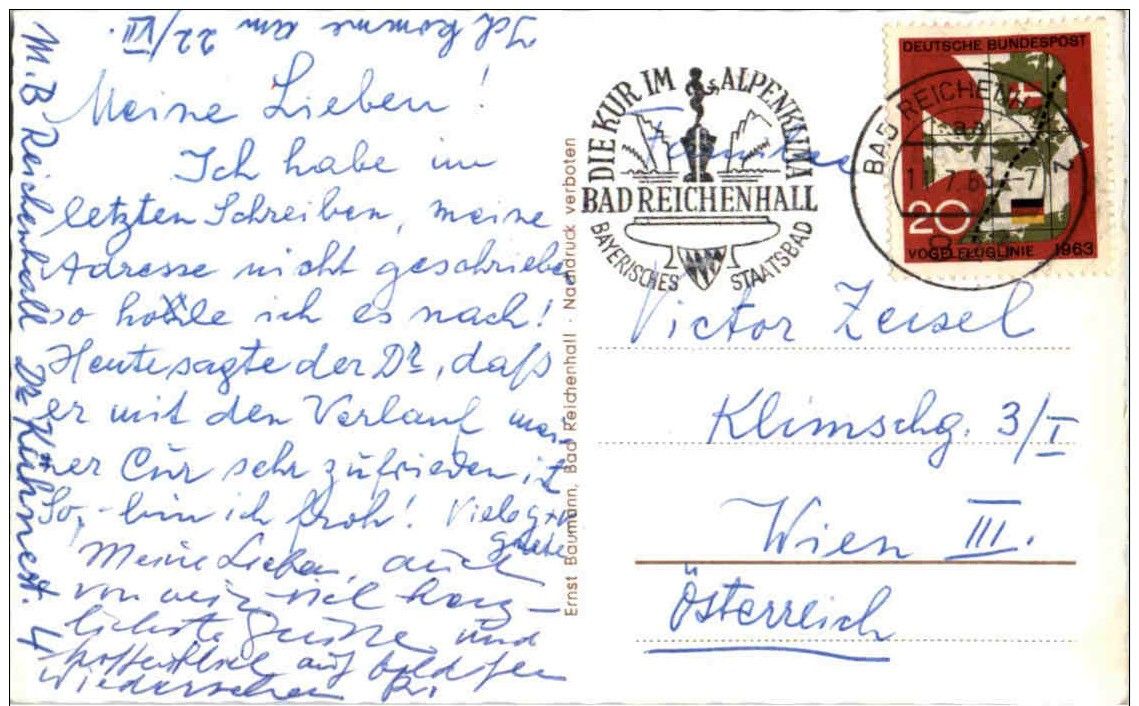 Ich komme am 22/VII.
Meine Lieben!
Ich habe im
letzten Schreiben, meine
Adresse nicht geschrieben
so hole ich es nach!
Heute sagte der Dr, daß
er mit den Verlauf mei
ner Cur sehr zufrieden ist
So, - bin ich froh!
Meine Lieben, auch
von mir viel herz-
lichste Grüsse und
hoffentlich auf baldigen
Wiedersehen
M. B Reichenhall Dr. Kühnestr. 4
Ernst Baumann, Bad Reichenhall · Nachdruck verboten
DIE KUR IM ALPENKLIMA
BAD REICHENHALL
BAYERISCHES STAATSBAD
DEUTSCHE BUNDESPOST
20
VOGELFLUGLINIE 1963
BAD REICHENHALL 2
Familie
Victor Zeisel
Klimschg. 3/I
Wien III.
Österreich